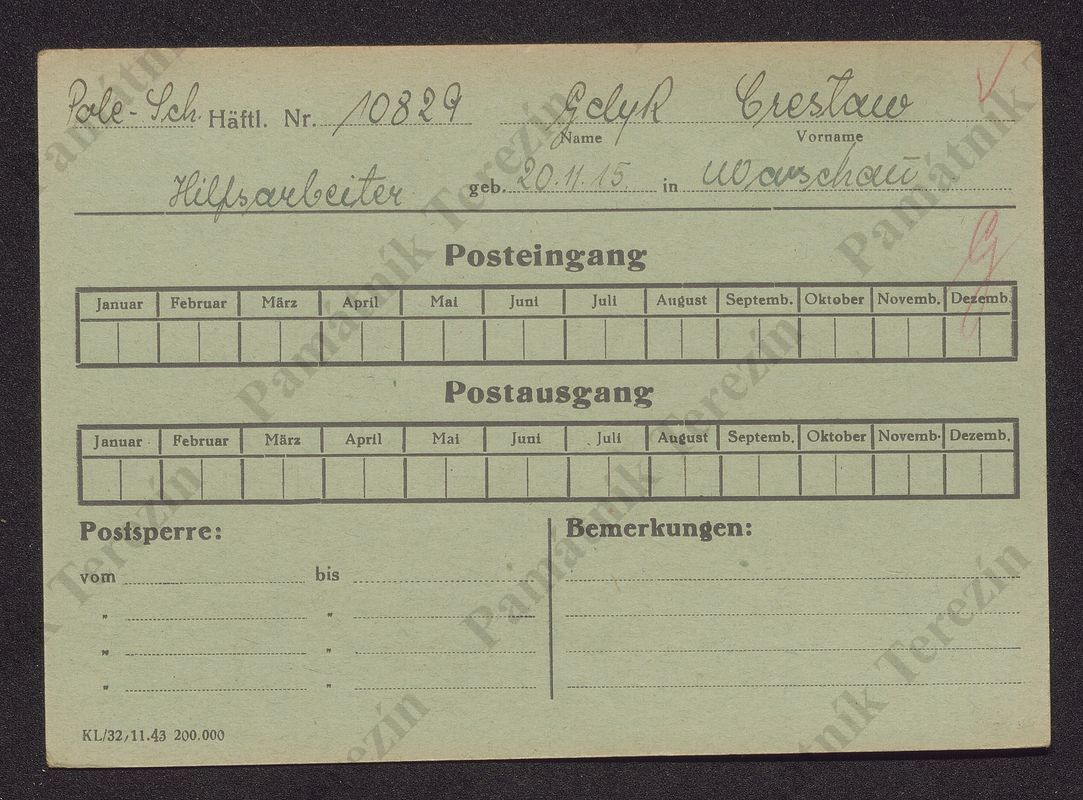 Pole - Sch. Häftl. Nr. 10829 Gdyk Creslaw
Name Vorname
Hilfsarbeiter geb. 20.11.15. in Warschau
Posteingang
Januar Februar März April Mai Juni Juli August Septemb. Oktober Novemb. Dezemb.
Postausgang
Januar Februar März April Mai Juni Juli August Septemb. Oktober Novemb. Dezemb.
Postsperre: Bemerkungen:
vom bis
" "
" "
" "
KL/32/11.43 200.000
Památník Terezín
Památník Terezín
Památník Terezín
Památník Terezín